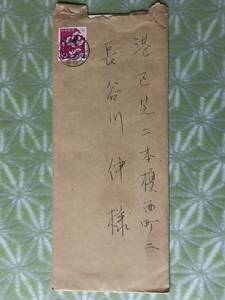 港区芝二本榎西町二
長谷川伸様